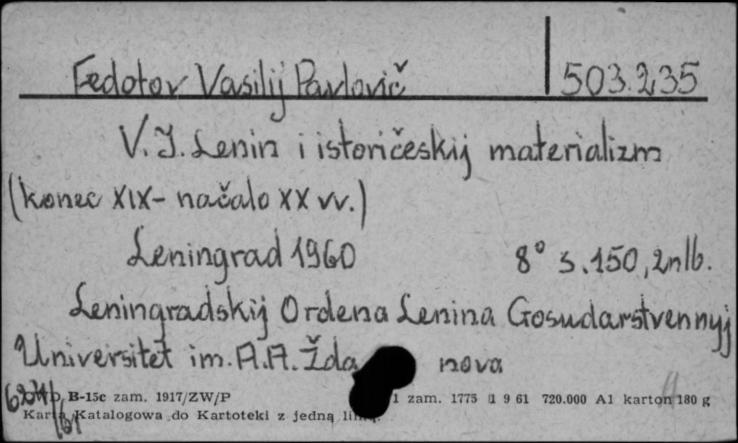 Fedotov Vasilij Pavlovič 503.235
V. I. Lenin i istoričeskij materializm
(konec XIX - načalo XX vv.)
Leningrad 1960 8° s. 150, 2nlb.
Leningradskij Ordena Lenina Gosudarstvennyj
Universitet im. A. A. Žda nova
B-15c zam. 1917/ZW/P 1 zam. 1775 9 61 720.000 A1 karton 180 g
Karta Katalogowa do Kartoteki z jedną